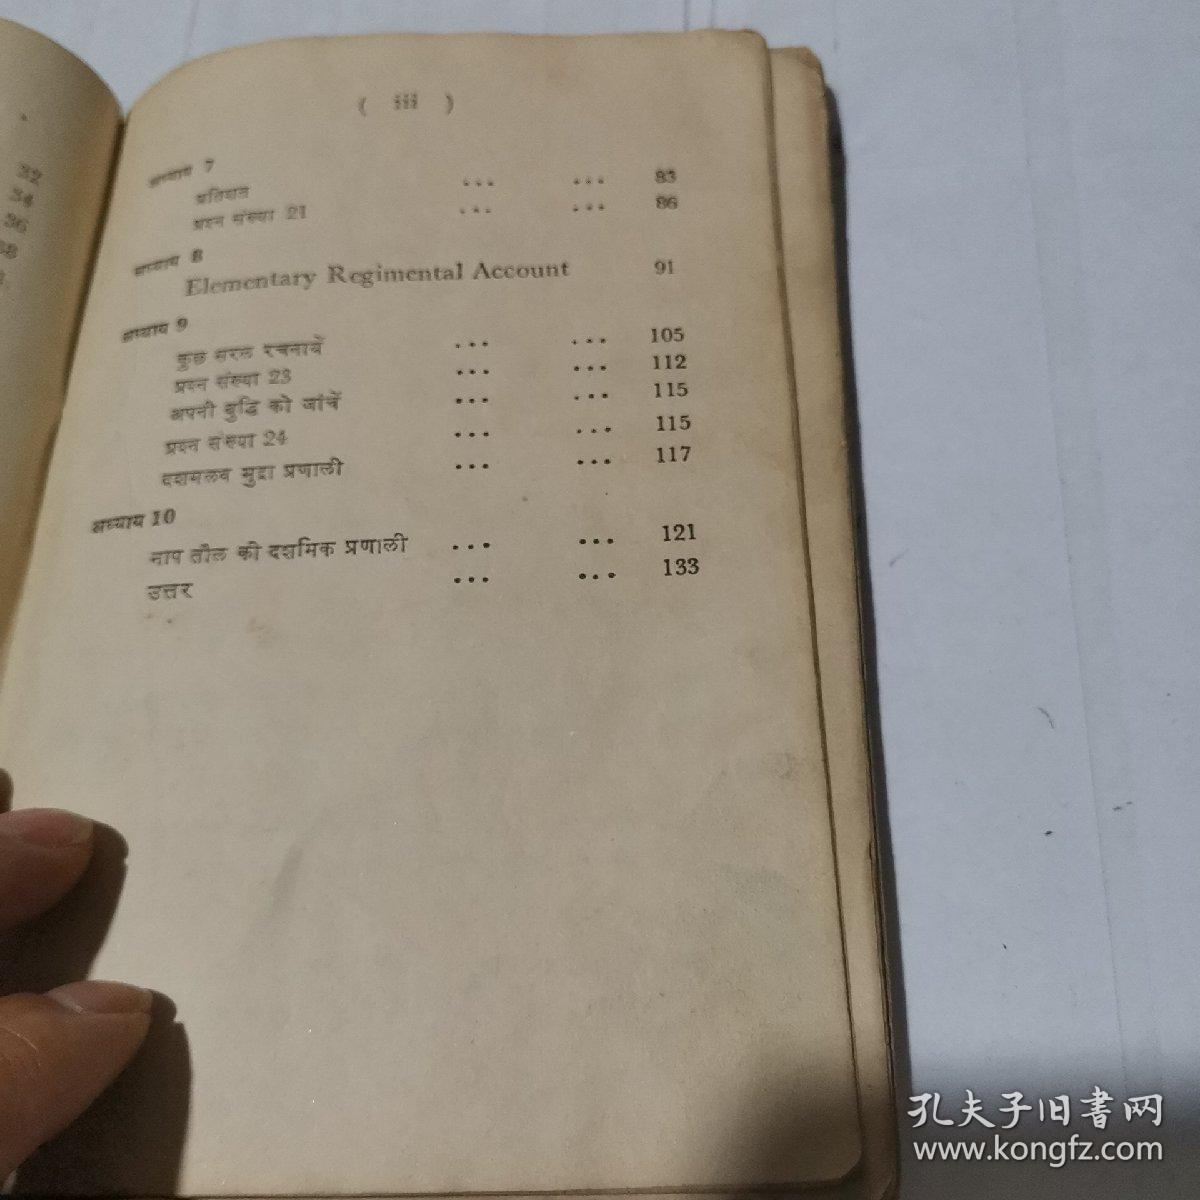 32
34
36
38
( iii )
अध्याय 7
प्रतिशत ... ... 83
प्रश्न संख्या 21 ... ... 86
अध्याय 8
Elementary Regimental Account 91
अध्याय 9
कुछ सरल रचनायें ... ... 105
प्रश्न संख्या 23 ... ... 112
अपनी बुद्धि को जांचें ... ... 115
प्रश्न संख्या 24 ... ... 115
दशमलव मुद्रा प्रणाली ... ... 117
अध्याय 10
नाप तौल की दशमिक प्रणाली ... ... 121
उत्तर ... ... 133
孔夫子旧書网
www.kongfz.com